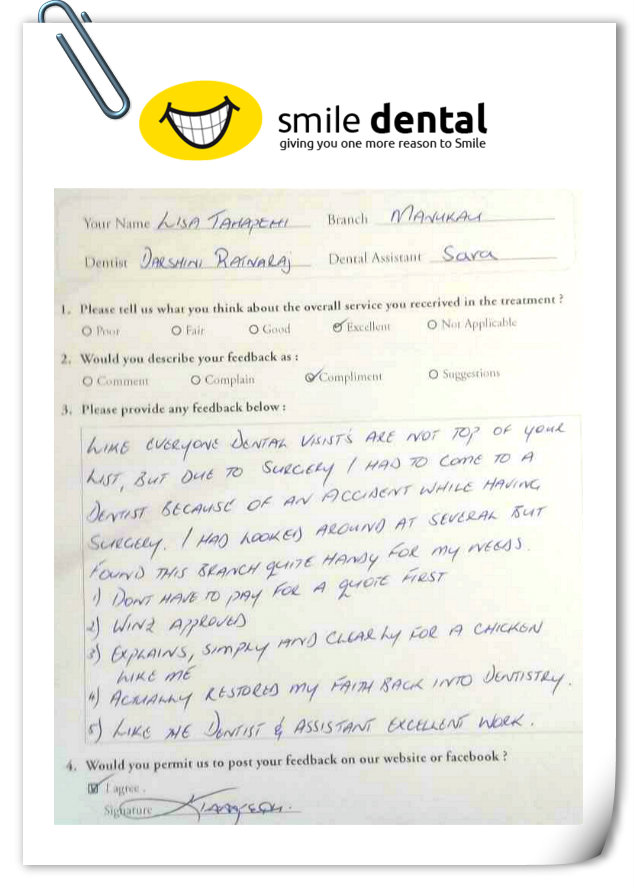 smile dental
giving you one more reason to Smile
Your Name LISA Branch MANUKAU
Dentist DARSHINI RATNARAJ Dental Assistant Sara
1. Please tell us what you think about the overall service you recerived in the treatment ?
Poor Fair Good Excellent Not Applicable
2. Would you describe your feedback as :
Comment Complain Compliment Suggestions
3. Please provide any feedback below :
LIKE EVERYONE DENTAL VISIST'S ARE NOT TOP OF YOUR
LIST, BUT DUE TO SURGERY I HAD TO COME TO A
DENTIST BECAUSE OF AN ACCIDENT WHILE HAVING
SURGERY. I HAD LOOKED AROUND AT SEVERAL BUT
FOUND THIS BRANCH QUITE HANDY FOR MY NEEDS.
1) DONT HAVE TO PAY FOR A QUOTE FIRST
2) WINZ APPROVED
3) EXPLAINS, SIMPLY AND CLEARLY FOR A CHICKEN
LIKE ME
4) ACTUALLY RESTORED MY FAITH BACK INTO DENTISTRY.
5) LIKE THE DENTIST & ASSISTANT EXCELLENT WORK.
4. Would you permit us to post your feedback on our website or facebook ?
I agree.
Signature